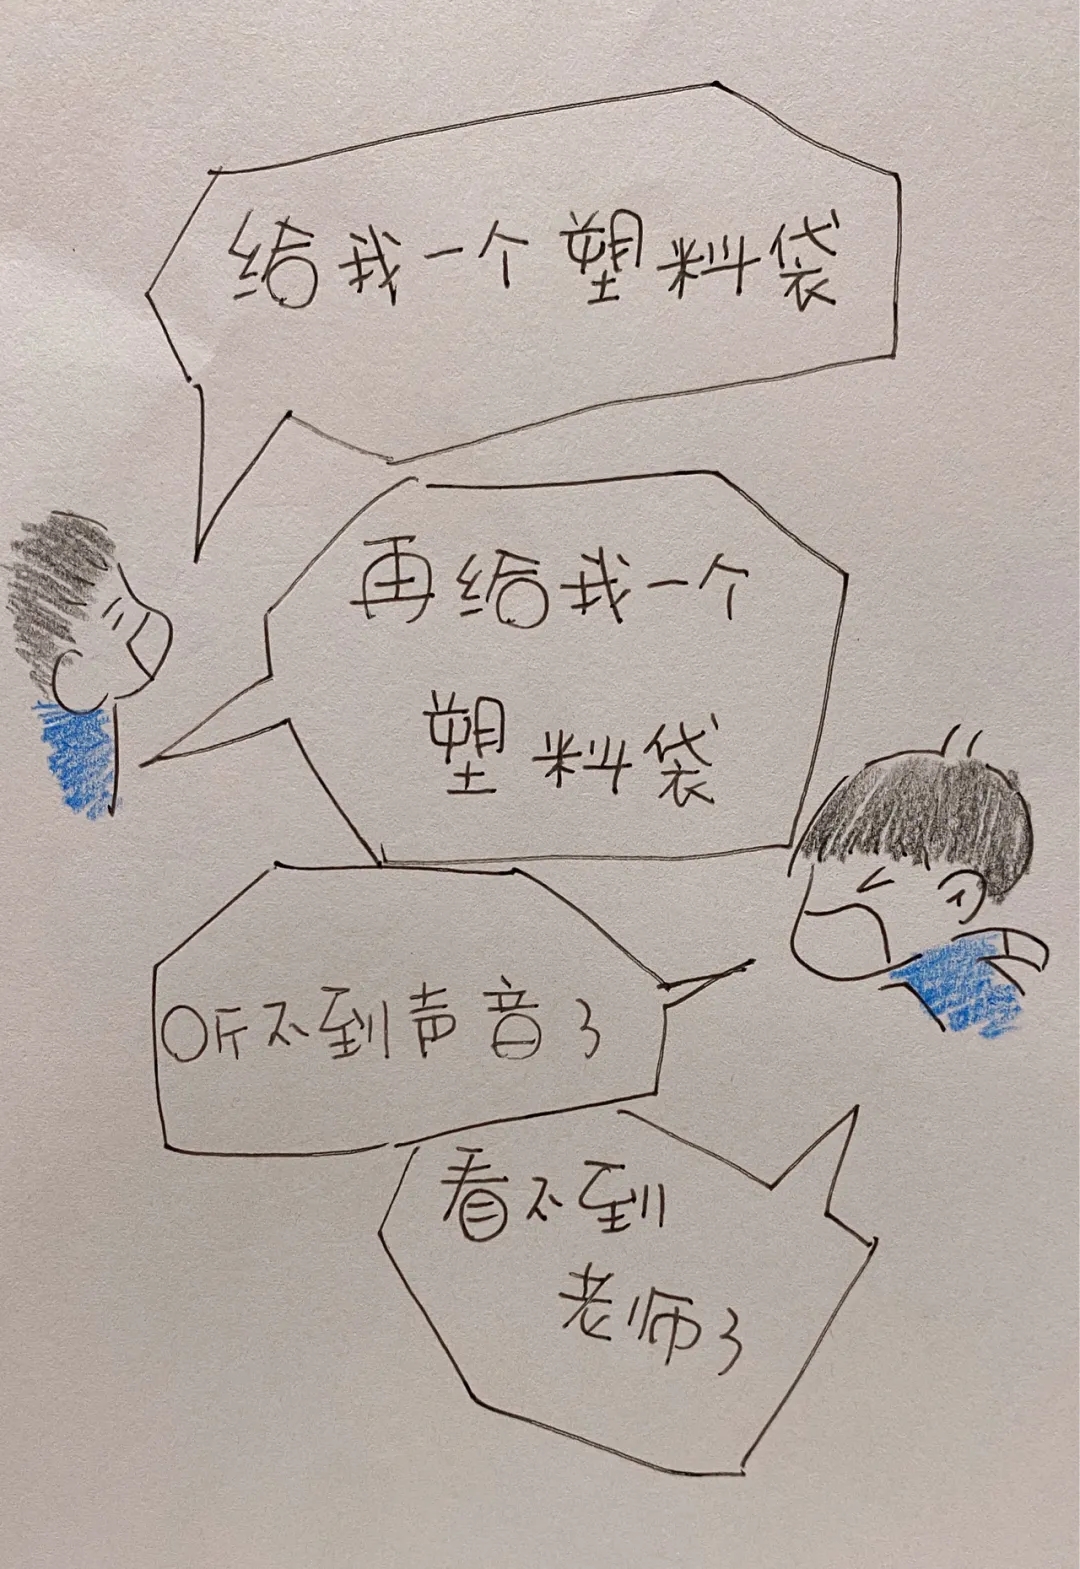 给我一个塑料袋
再给我一个
塑料袋
听不到声音了
看不到
老师了